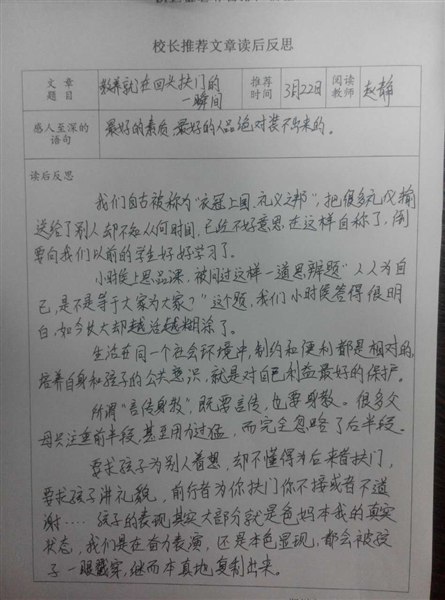 校长推荐文章读后反思
文章题目
教养就在回头扶门的
一瞬间
推荐时间
3月22日
阅读教师
赵静
感人至深的语句
最好的素质,最好的人品绝对装不出来的。
读后反思
我们自古被称为"衣冠上国、礼义之邦",把很多礼仪输
送给了别人,却不知从何时间,已经不好意思在这样自称了,
要向我们以前的学生好好学习了。
小时侯上思品课,被问过这样一道思辨题"人人为自
己,是不是等于大家为大家?"这个题,我们小时侯答得很明
白,如今长大却越活越糊涂了。
生活在同一个社会环境冲,制约和便利都是相对的,
培养自身和孩子的公共意识,就是对自己利益最好的保护。
所谓"言传身教",既要言传,也要身教。很多父
母只注重前半段,甚至用力过猛,而完全忽略了后半段。
要求孩子为别人着想,却不懂得为后来者扶门,
要求孩子讲礼貌,前行者为你扶门你不接或者不道
谢……孩子的表现其实大部分就是爸妈本我的真实
状态,我们是在奋力表演,还是本色显现,都会被孩
子一眼戳穿,继而本真地复制出来。